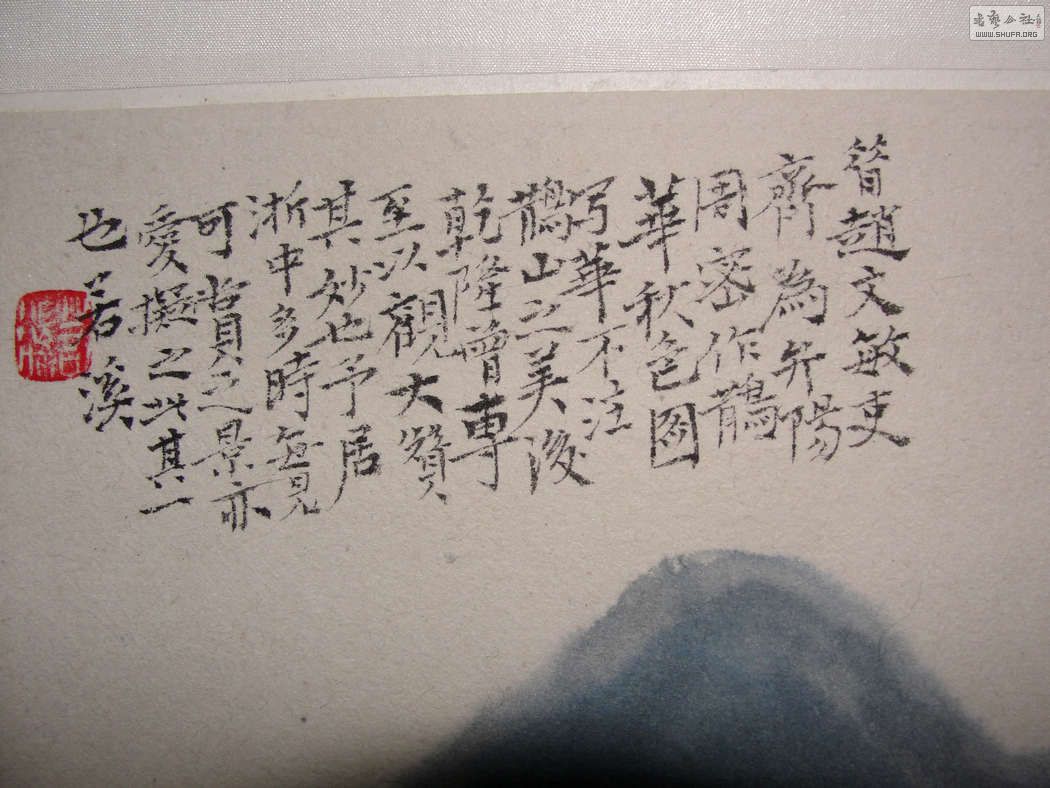 昝趙文敏吏
齊為弁陽
周密作鵲
華秋色图
写華不注
鵲山之美後
乾隆曾專
至以觀大贊
其妙也予居
浙中多時每見
可賞之景亦
愛擬之此其一
也若溪
書藝公社
WWW.SHUFA.ORG